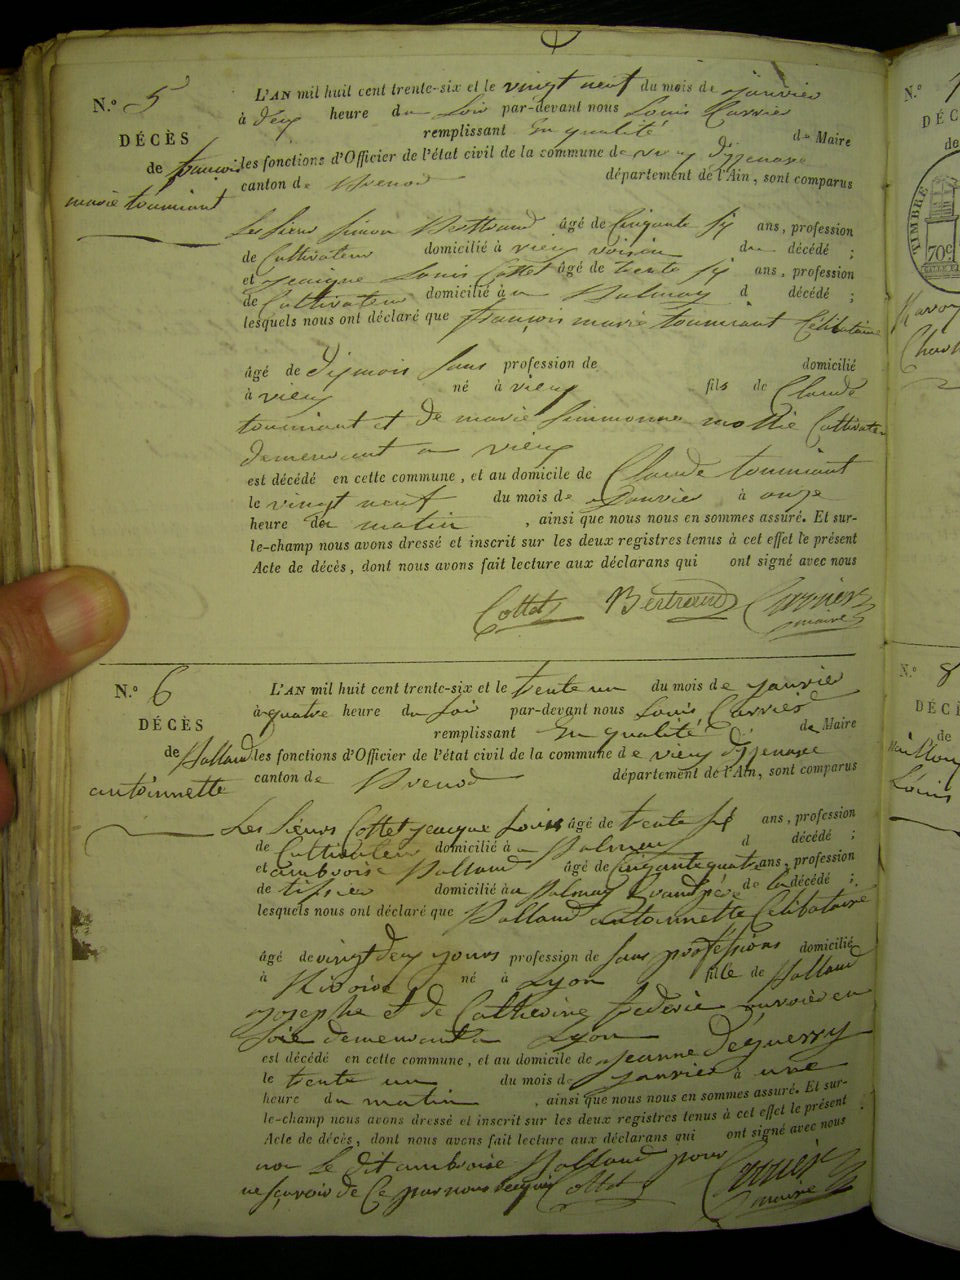 N.o 5
DÉCÈS
de françois
marie tourniant
L'AN mil huit cent trente-six et le vingt neuf du mois de janvier
à deux heure du soir par-devant nous Louis Carrier
remplissant en qualité de Maire
les fonctions d'Officier de l'état civil de la commune de vieu d'izenave
canton de Brenod département de l'Ain, sont comparus
Les sieurs simon Bertrand âgé de cinquante six ans, profession
de Cultivateur domicilié à vieu voisin du décédé ;
et jacque Louis Cottet âgé de trente six ans, profession
de Cultivateur domicilié à a d décédé ;
lesquels nous ont déclaré que françois marie tourniant Célibataire
âgé de dix mois sans profession de domicilié
à vieu né à vieu fils de Claude
tourniant et de marie simmonne Cultivateur
demeurant a vieu
est décédé en cette commune, et au domicile de Claude tourniant
le vingt neuf du mois de janvier à onze
heure du matin , ainsi que nous nous en sommes assuré. Et sur-
le-champ nous avons dressé et inscrit sur les deux registres tenus à cet effet le présent
Acte de décès, dont nous avons fait lecture aux déclarans qui ont signé avec nous
Cottet Bertrand Carrier
maire
N.o 6
DÉCÈS
de Holland
antoinnette
L'AN mil huit cent trente-six et le trente un du mois de janvier
à quatre heure du soir par-devant nous Louis Carrier
remplissant en qualité de Maire
les fonctions d'Officier de l'état civil de la commune de vieu d'izenave
canton de Brenod département de l'Ain, sont comparus
Les sieurs Cottet jacque Louis âgé de trente six ans, profession
de Cultivateur domicilié à a d décédé ;
et ambroise Holland âgé de cinquante quatre ans, profession
de tissier domicilié à a Grand père de la décédé ;
lesquels nous ont déclaré que Holland antoinnette Célibataire
âgé de vingt deux jours profession de sans professions domicilié
à né à Lyon fille de Holland
josephe et de Catherine ouvrière en
soie demeurant a Lyon
est décédé en cette commune, et au domicile de jeanne
le trente un du mois de janvier à une
heure du matin , ainsi que nous nous en sommes assuré. Et sur-
le-champ nous avons dressé et inscrit sur les deux registres tenus à cet effet le présent
Acte de décès, dont nous avons fait lecture aux déclarans qui ont signé avec nous
non Le dit ambroise Holland pour
ne sçavoir de Ce par nous requis Cottet Carrier
maire
N.o
DÉC
de
TIMBRE
70c
N.o 8
DÉCÈ
de
Louis